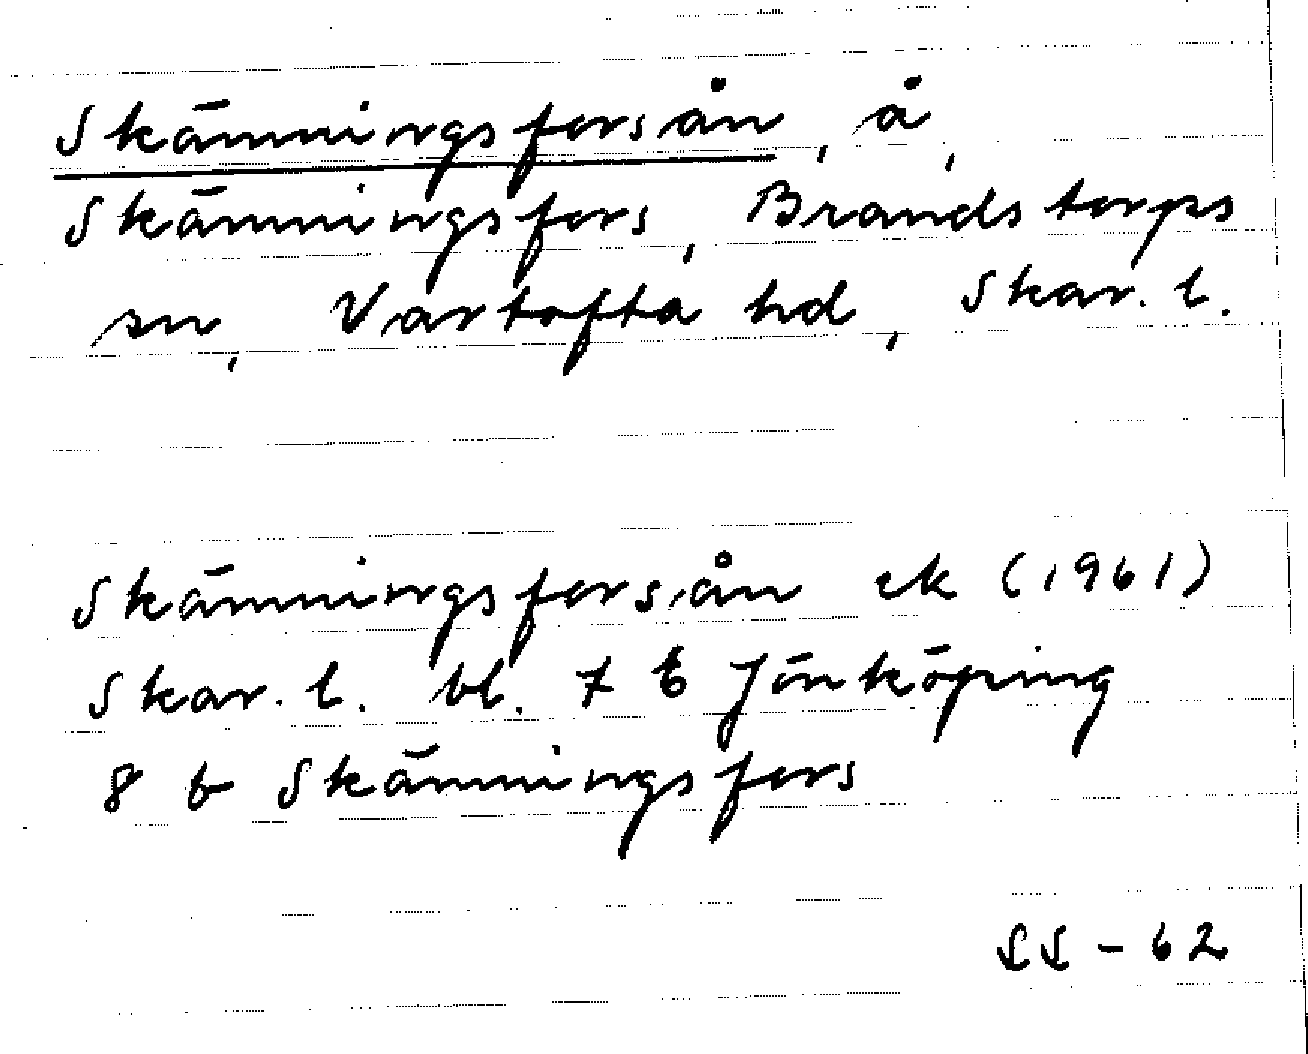 Skämningsforsån, å,
Skämningsfors, Brandstorps
sn, Vartofta hd, Skar. l.
Skämningsforsån ek (1961)
Skar. l. bl. 7 b Jönköping
8 b Skämningsfors
SS-62